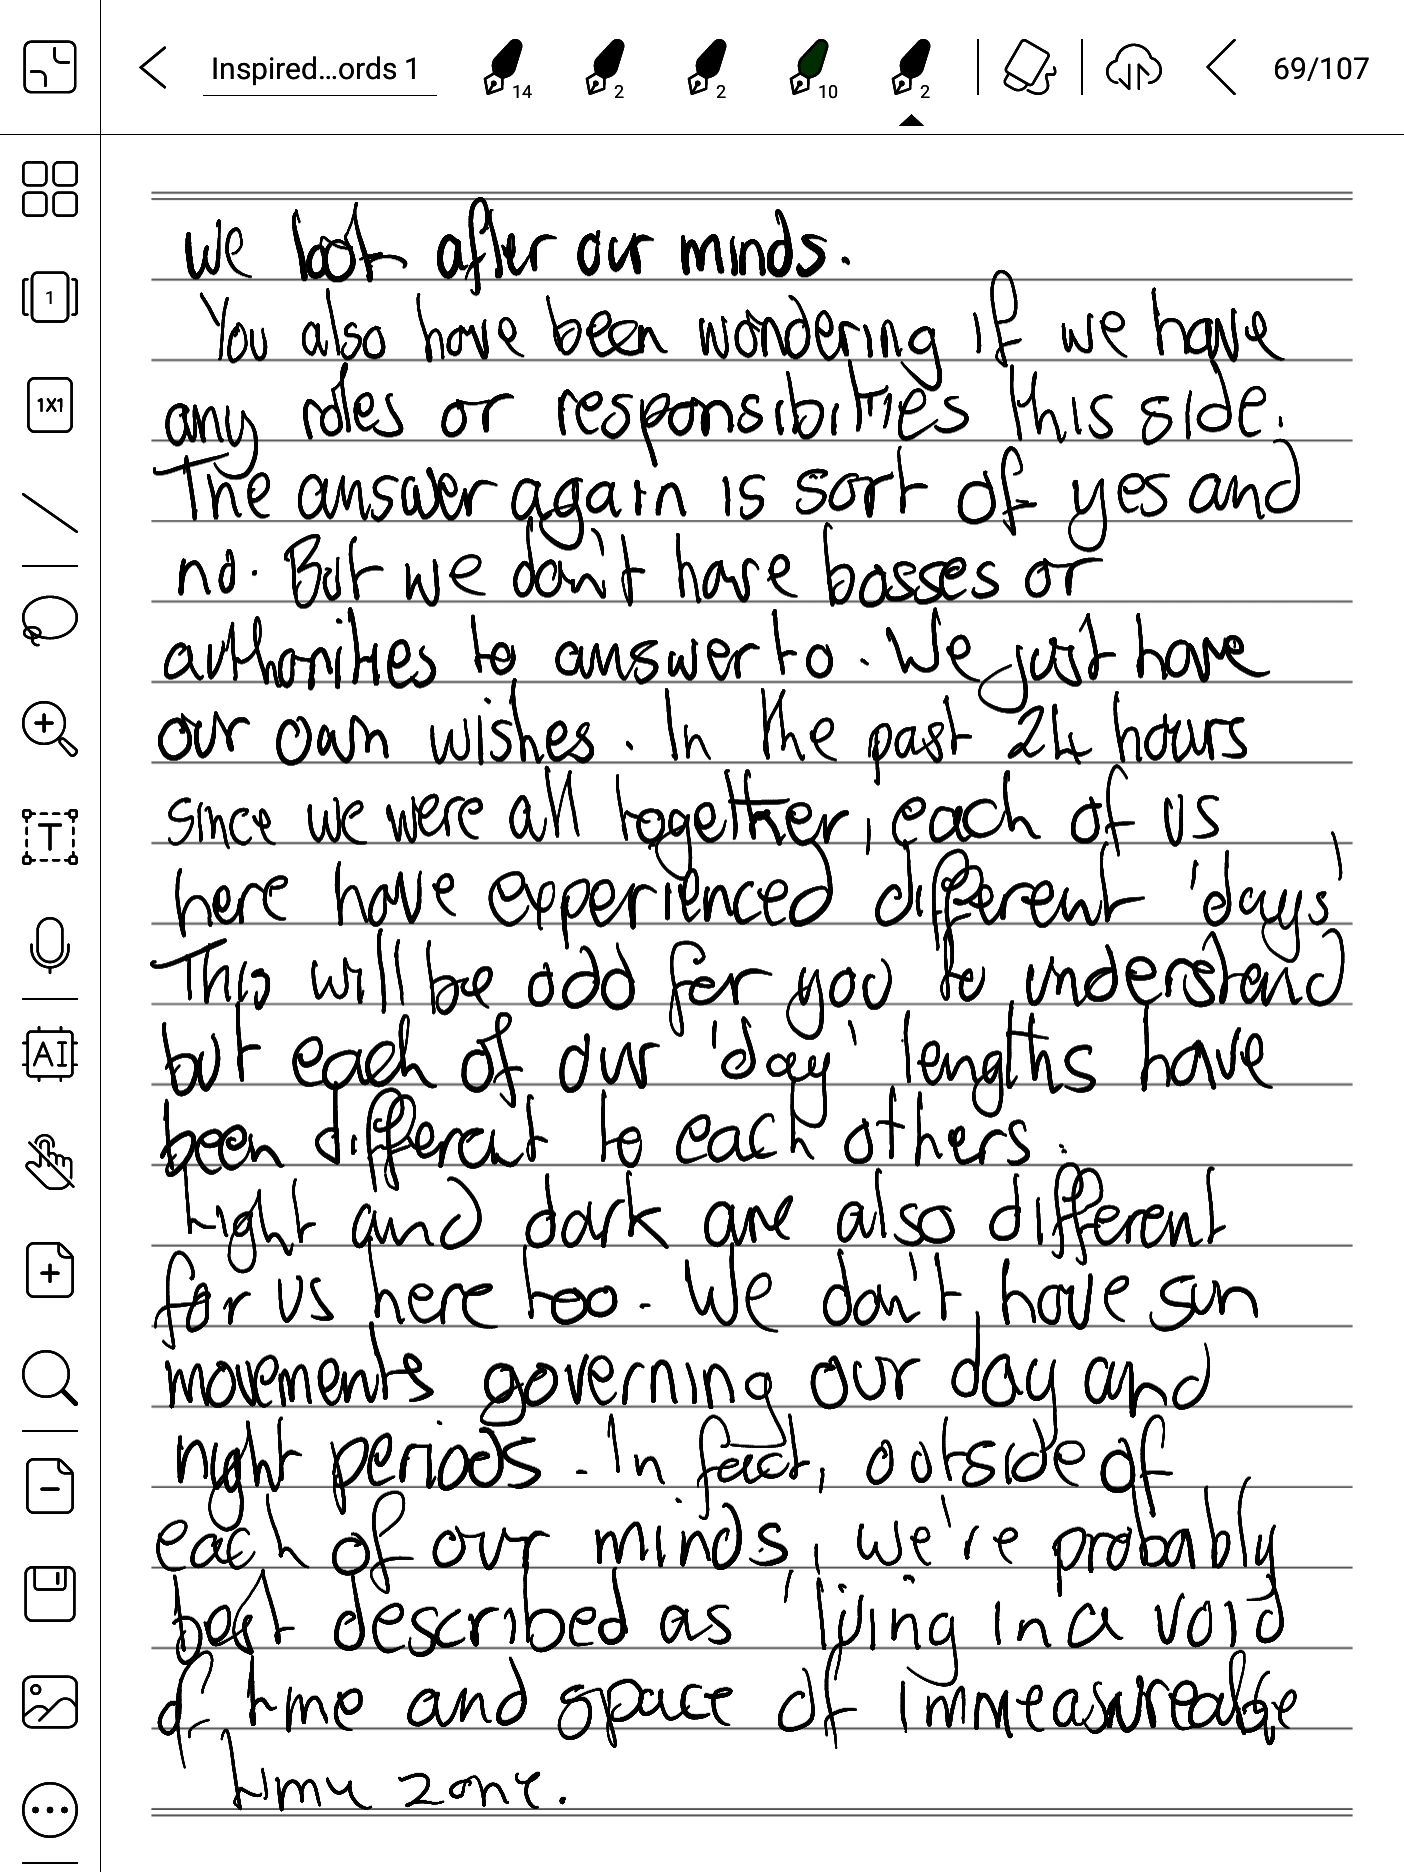 Inspired...ords 1
14
2
2
10
2
69/107
1
1X1
T
AI
We look after our minds.
You also have been wondering if we have
any roles or responsibilities this side.
The answer again is sort of yes and
no. But we don't have bosses or
authorities to answer to. We just have
our own wishes. In the past 24 hours
since we were all together, each of us
here have experienced different 'days'
This will be odd for you to understand
but each of our 'day' lengths have
been different to each others.
Light and dark are also different
for us here too. We don't have sun
movements governing our day and
night periods. In fact, outside of
each of our minds, we're probably
best described as 'living in a void
of time and space of immeasureable
time zone.